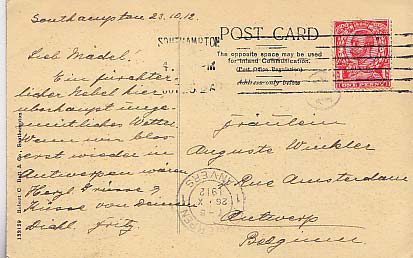 Southampton 23.10.12.
Lieb Mädel!
Ein fürchter-
licher Nebel hier
überhaupt unge-
mütliches Wetter.
Wenn wir blos
erst wieder in
Antwerpen wären
Herzl. Grüsse &
Küsse von deinem
Fritz.
SOUTHAMPTON
POST CARD
The opposite space may be used
for Inland Communication.
(Post Office Regulation)
Address only below
ONE PENNY
Fräulein
Auguste Winkler
Rue Amsterdam
Antwerp
Belgium
ANVERS
26 X
1912